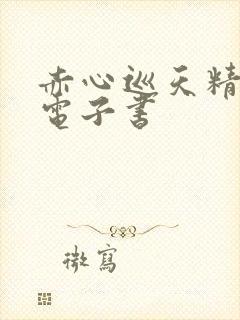 赤心巡天精
電子書
微寫